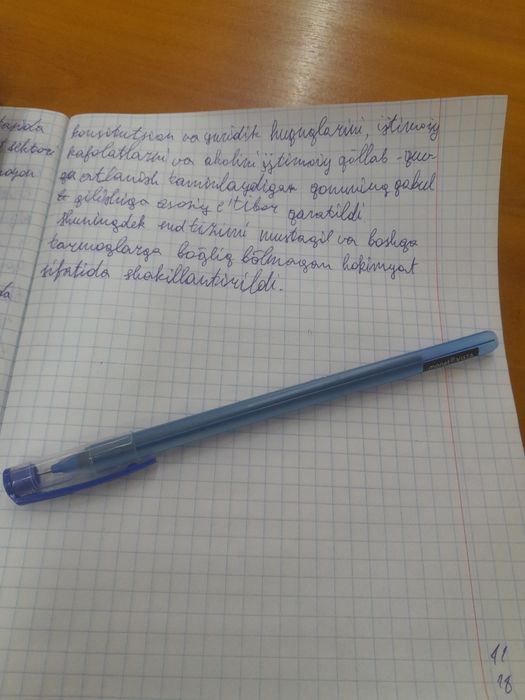 tasida
sektori
konsitutsion va yuridik huquqlarini, ijtimoiy
kafolatlarni va aholini ijtimoiy qo'llab-quv-
vatlanish taminlaydigan qonunning qabul
qilishiga asosiy e'tibor qaratildi.
shuningdek sud tizimi mustaqil va boshqa
tarmoqlarga bog'liq bo'lmagan hokimyat
sifatida shakillantirildi.
da